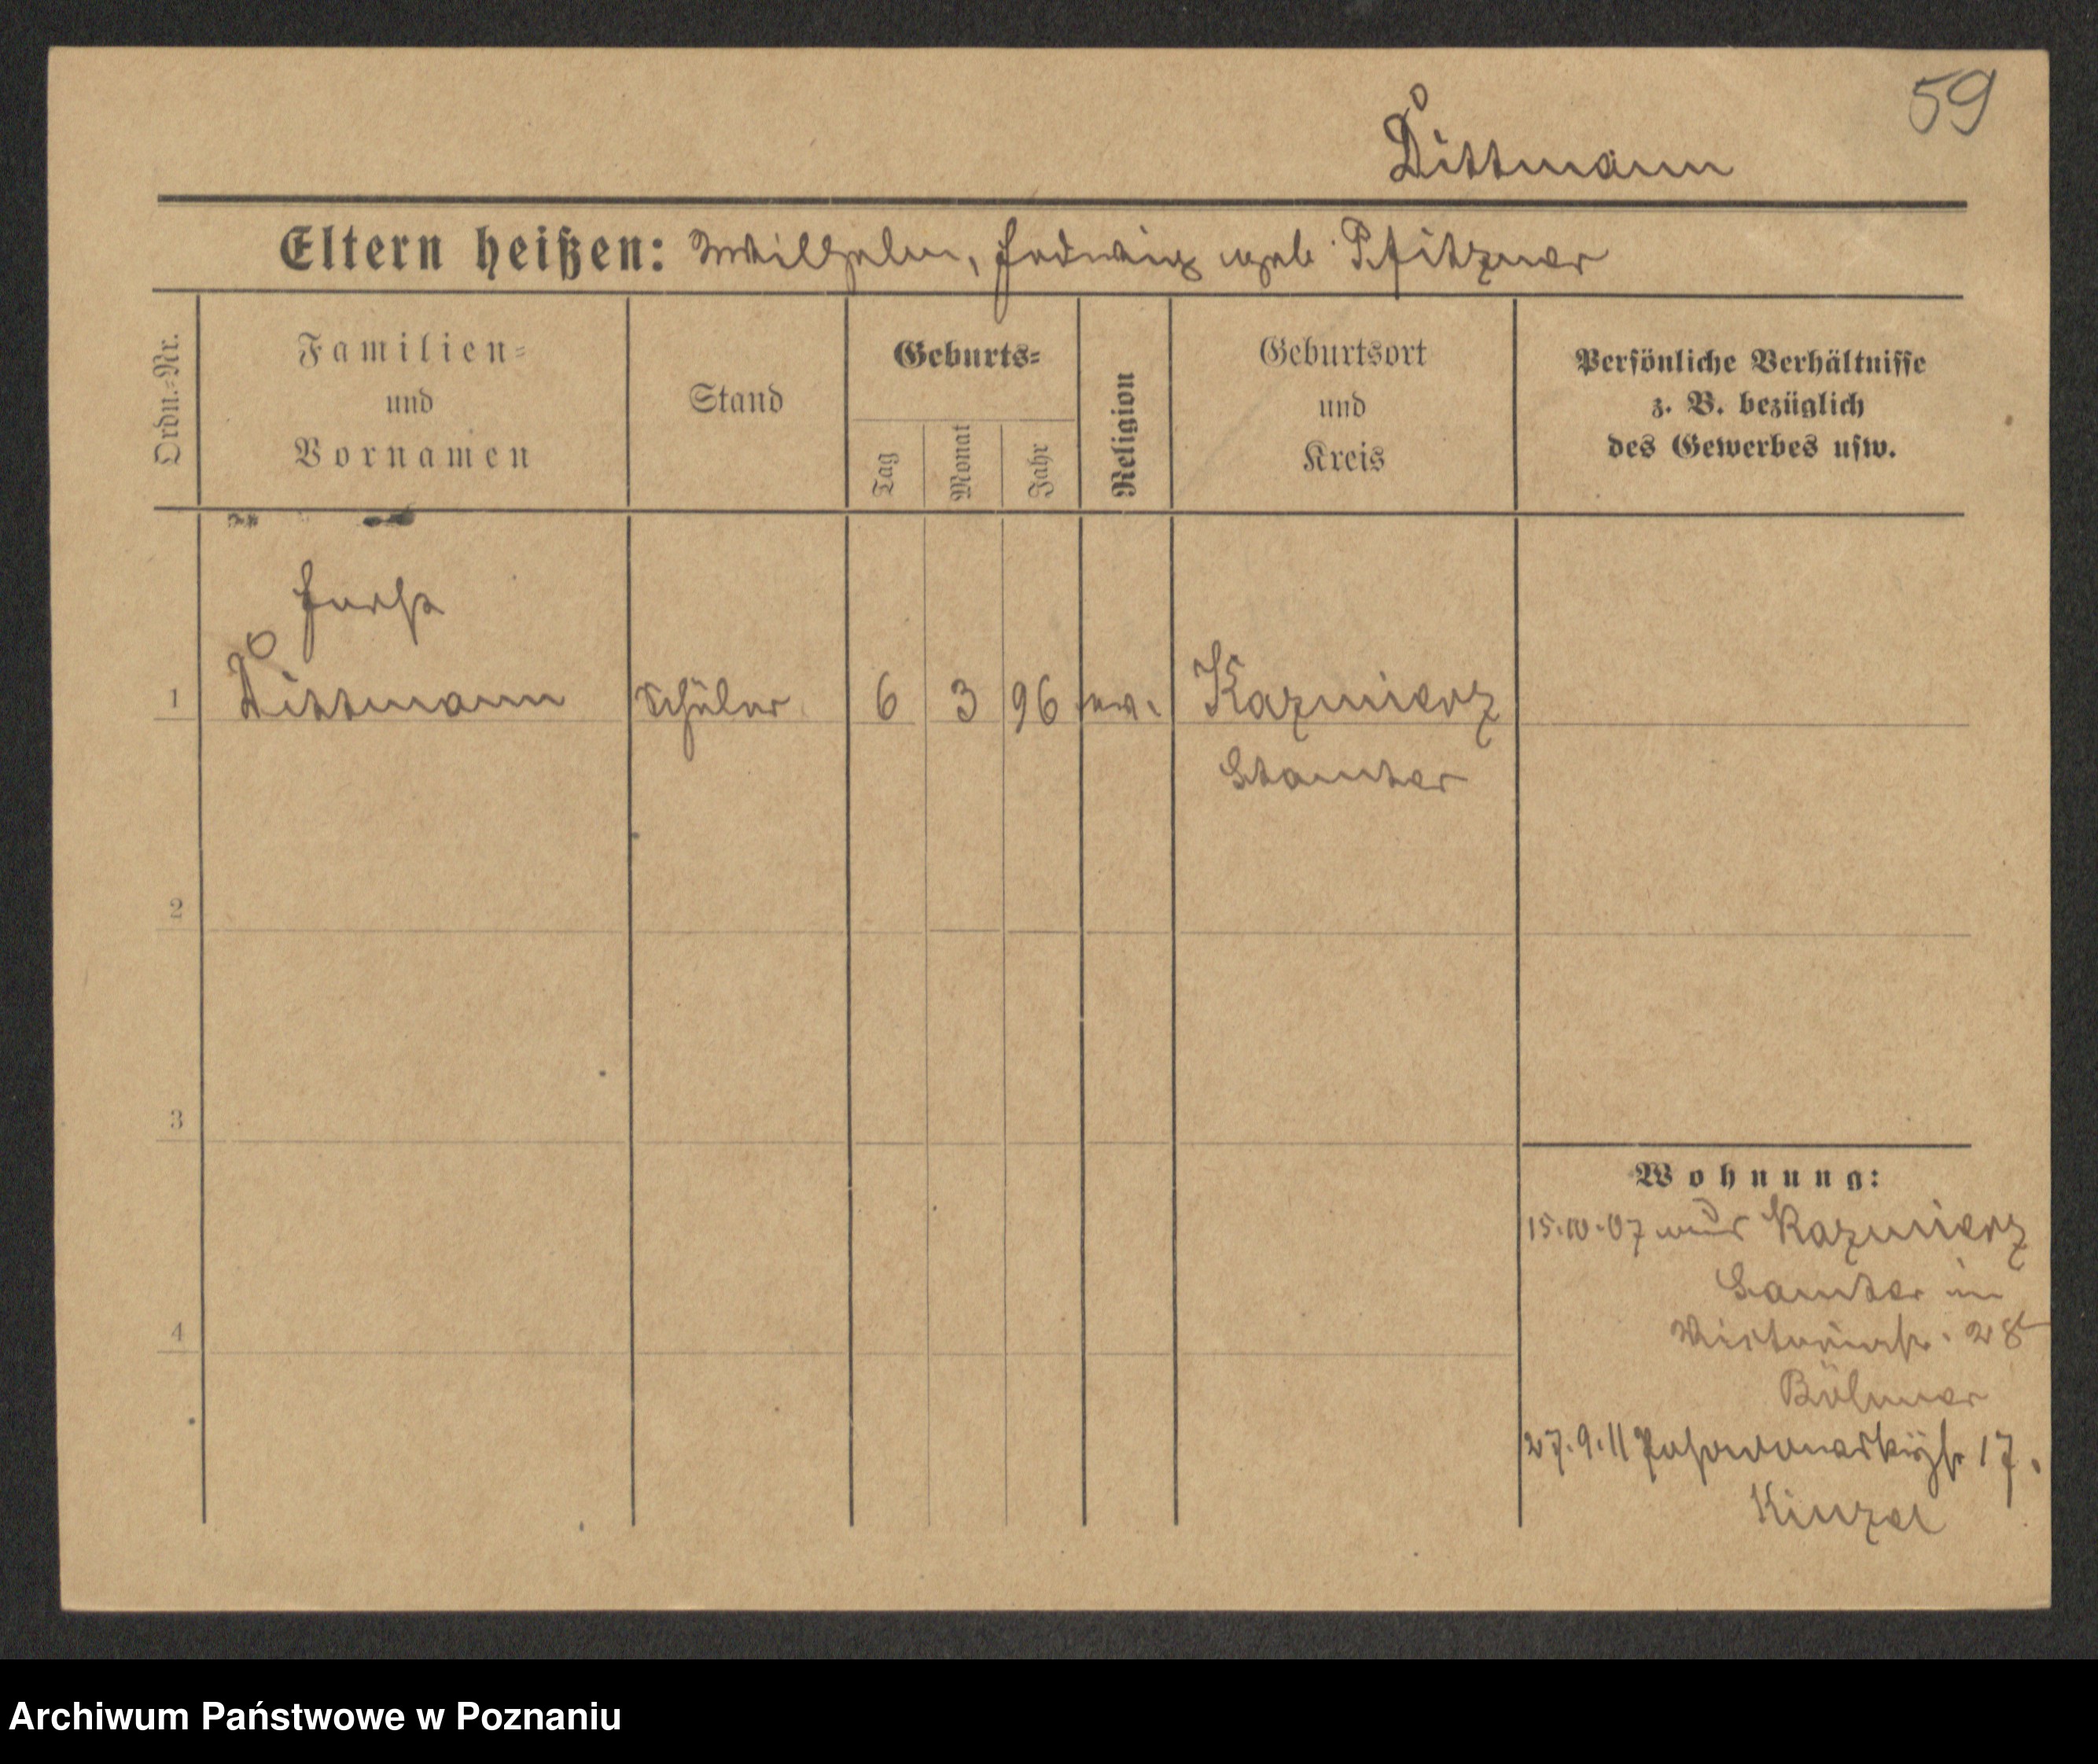 59
Dittmann
Eltern heißen: Wilhelm, Hedwig geb. Pfitzner
Ordn.-Nr.
Familien-
und
Vornamen
Stand
Geburts-
Tag
Monat
Jahr
Religion
Geburtsort
und
Kreis
Persönliche Verhältnisse
z. B. bezüglich
des Gewerbes usw.
1
Dittmann
Schüler
6
3
96
ev.
Kazmierz
Samter
2
3
4
Wohnung:
15.10.07 aus Kazmierz
Samter in
Victoriastr. 28
27.9.11 17.
Kinzel
Archiwum Państwowe w Poznaniu